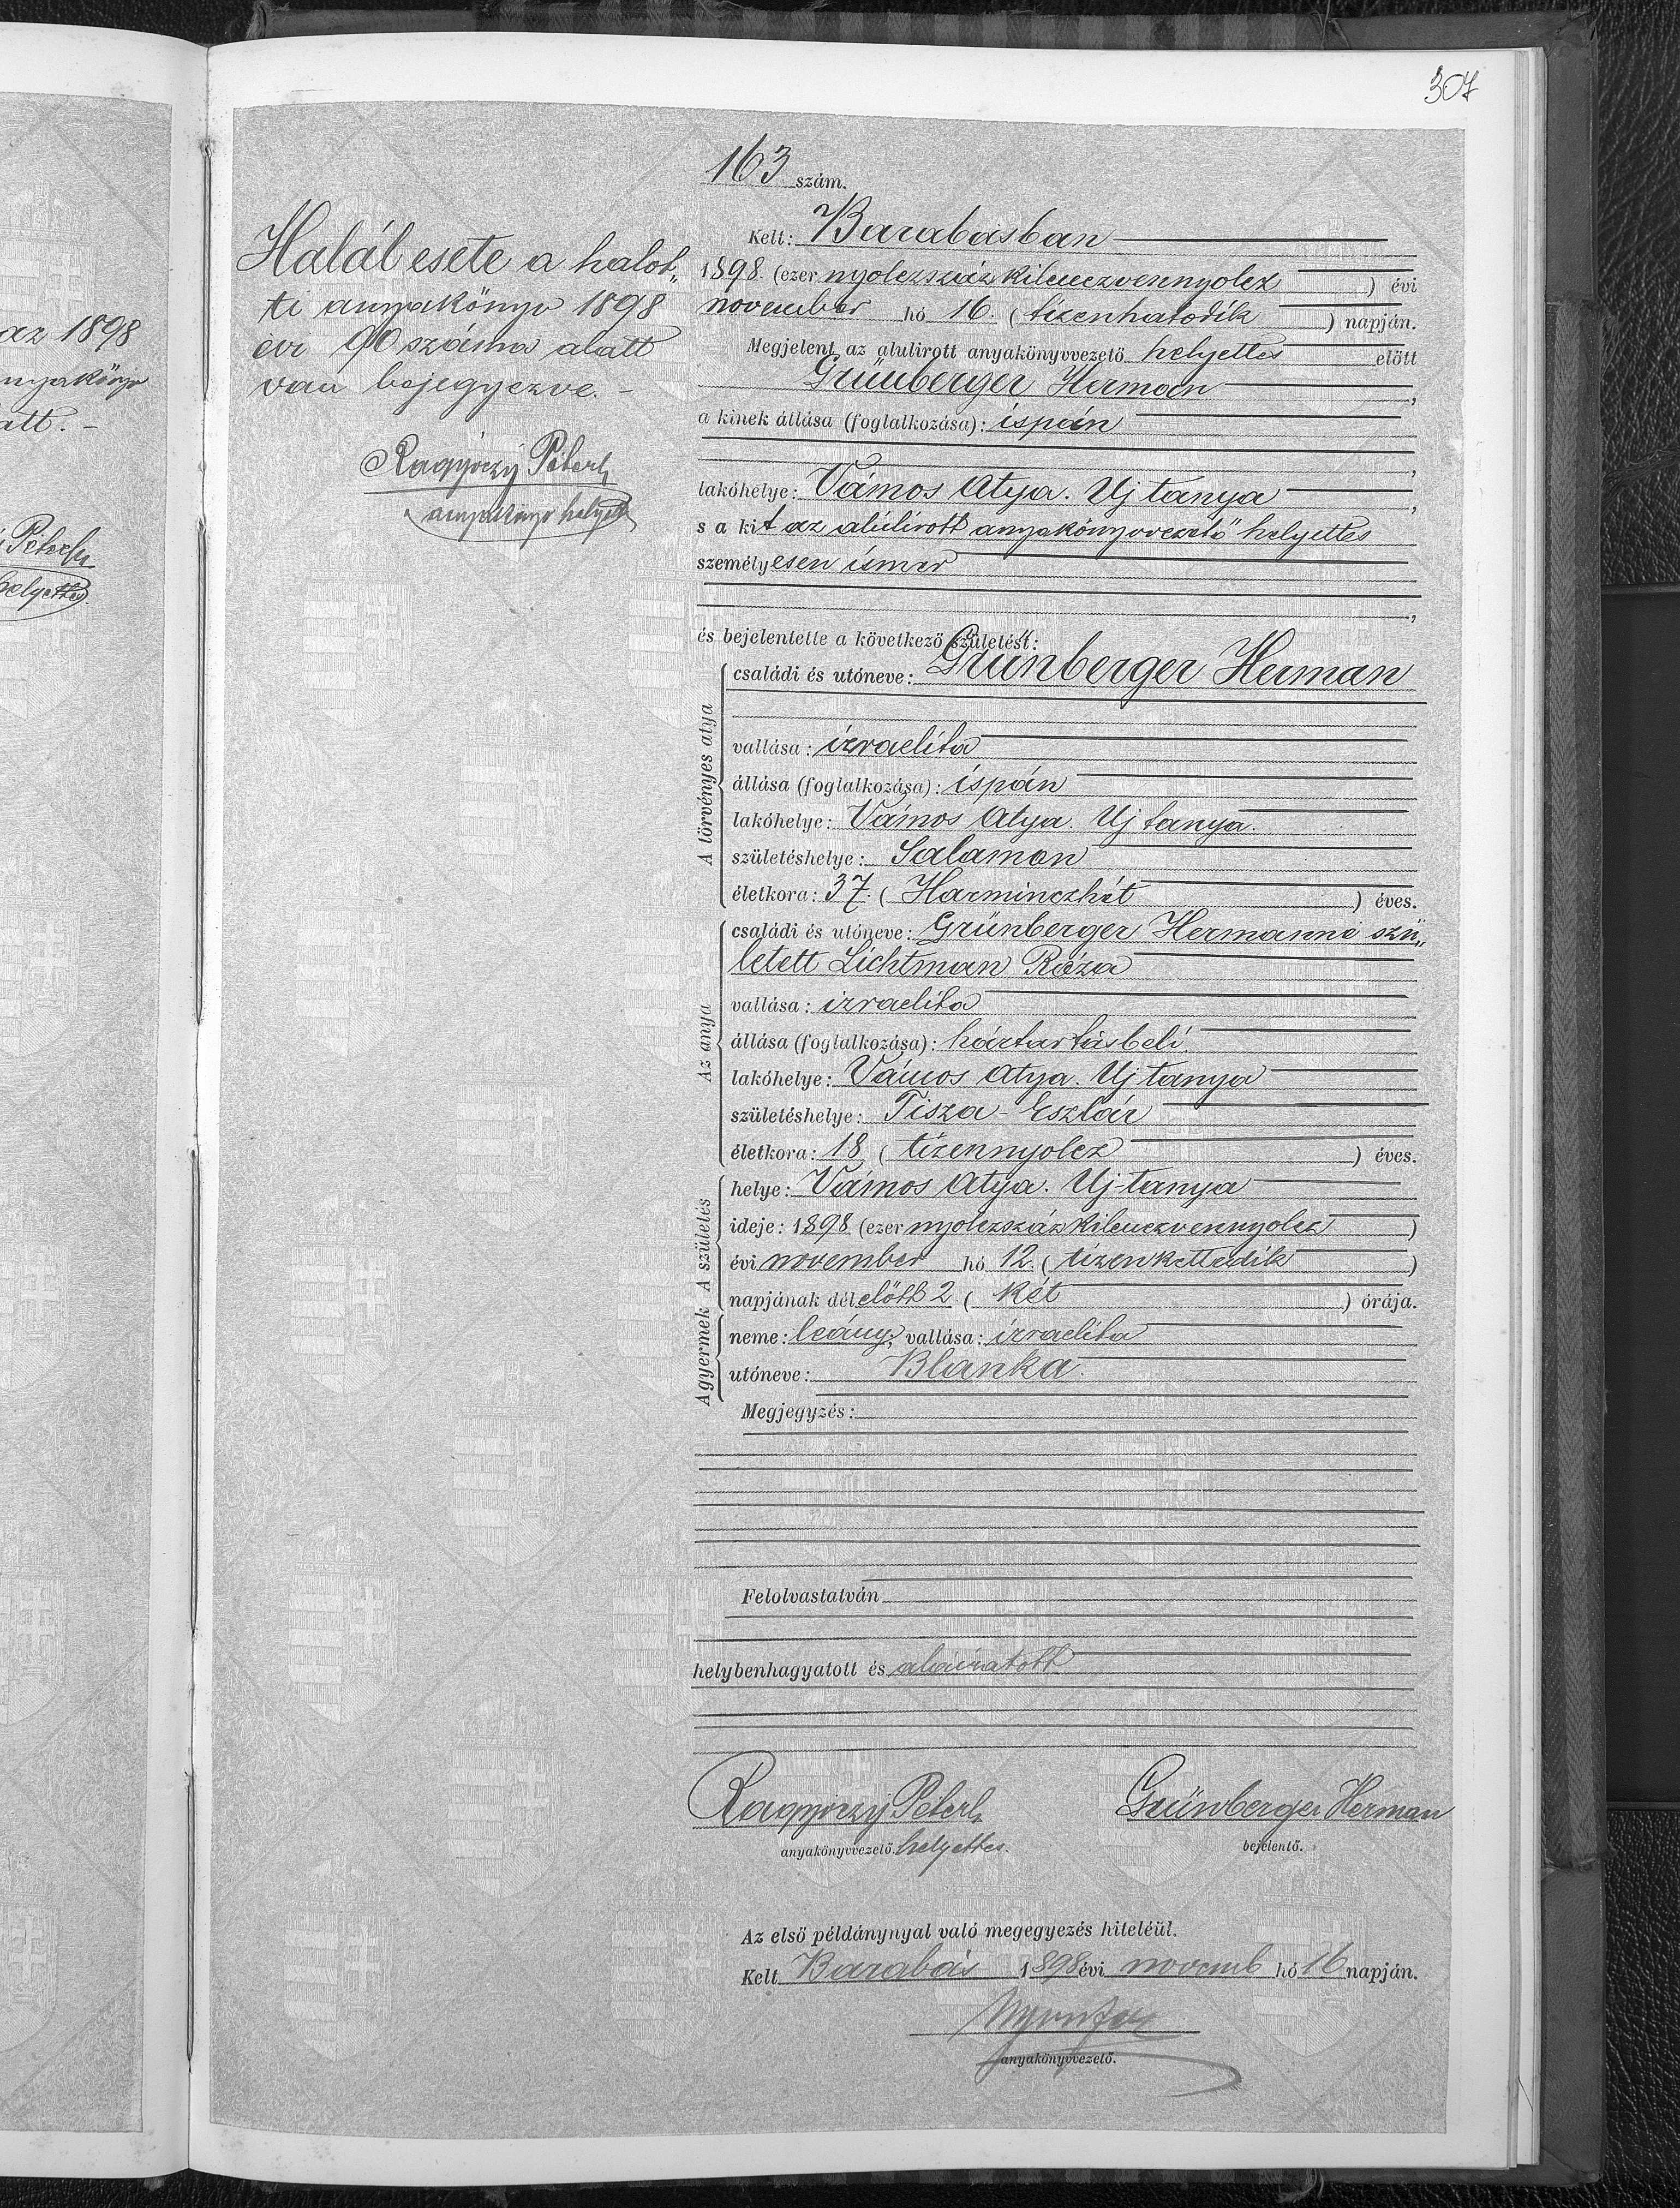 307
az 1898
nyakönyv
att. -
Péterfy
helyettes
Halál esete a halot„
ti anyakönyv 1898
évi 90 száma alatt
van bejegyezve. -
anyakönyv helyett
163 szám.
Kelt: Barabásban
1898 (ezer nyolczszázkilenczvennyolcz ) évi
november hó 16. (tizenhatodik ) napján.
Megjelent az alulirott anyakönyvvezető helyettes előtt
Grünberger Herman,
a kinek állása (foglalkozása): ispán
,
lakóhelye: Vámos Atya. Uj tanya,
s a kit az alúlirott anyakönyvvezető helyettes
személyesen ismer
,
és bejelentette a következő születést:
A törvényes atya
családi és utóneve: Grünberger Herman
vallása: izraelita
állása (foglalkozása): ispán
lakóhelye: Vámos Atya. Uj tanya.
születéshelye: Salamon
életkora: 37. (Harminczhét ) éves.
Az anya
családi és utóneve: Grünberger Hermanné szü„
letett Lichtman Róza
vallása: izraelita
állása (foglalkozása): háztartásbeli.
lakóhelye: Vámos Atya. Uj tanya
születéshelye: Tisza-Eszlár
életkora: 18 (tizennyolcz ) éves.
A születés
helye: Vámos Atya. Uj-tanya
ideje: 1898 (ezer nyolczszázkilenczvennyolcz )
évi november hó 12. (tizenkettedik )
napjának délelőtt 2 ( két ) órája.
A gyermek
neme: leány; vallása: izraelita
utóneve: Blanka.
Megjegyzés:
Felolvastatván
helybenhagyatott és aláiratott
Grünberger Herman
anyakönyvvezető helyettes.
bejelentő.
Az első példánynyal való megegyezés hiteléül.
Kelt Barabás 1898 évi novemb hó 16 napján.
anyakönyvvezető.